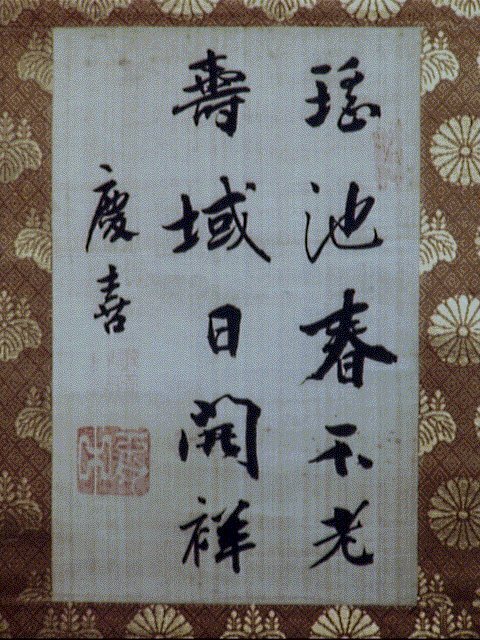 瑤池春不老
壽域日開祥
慶喜